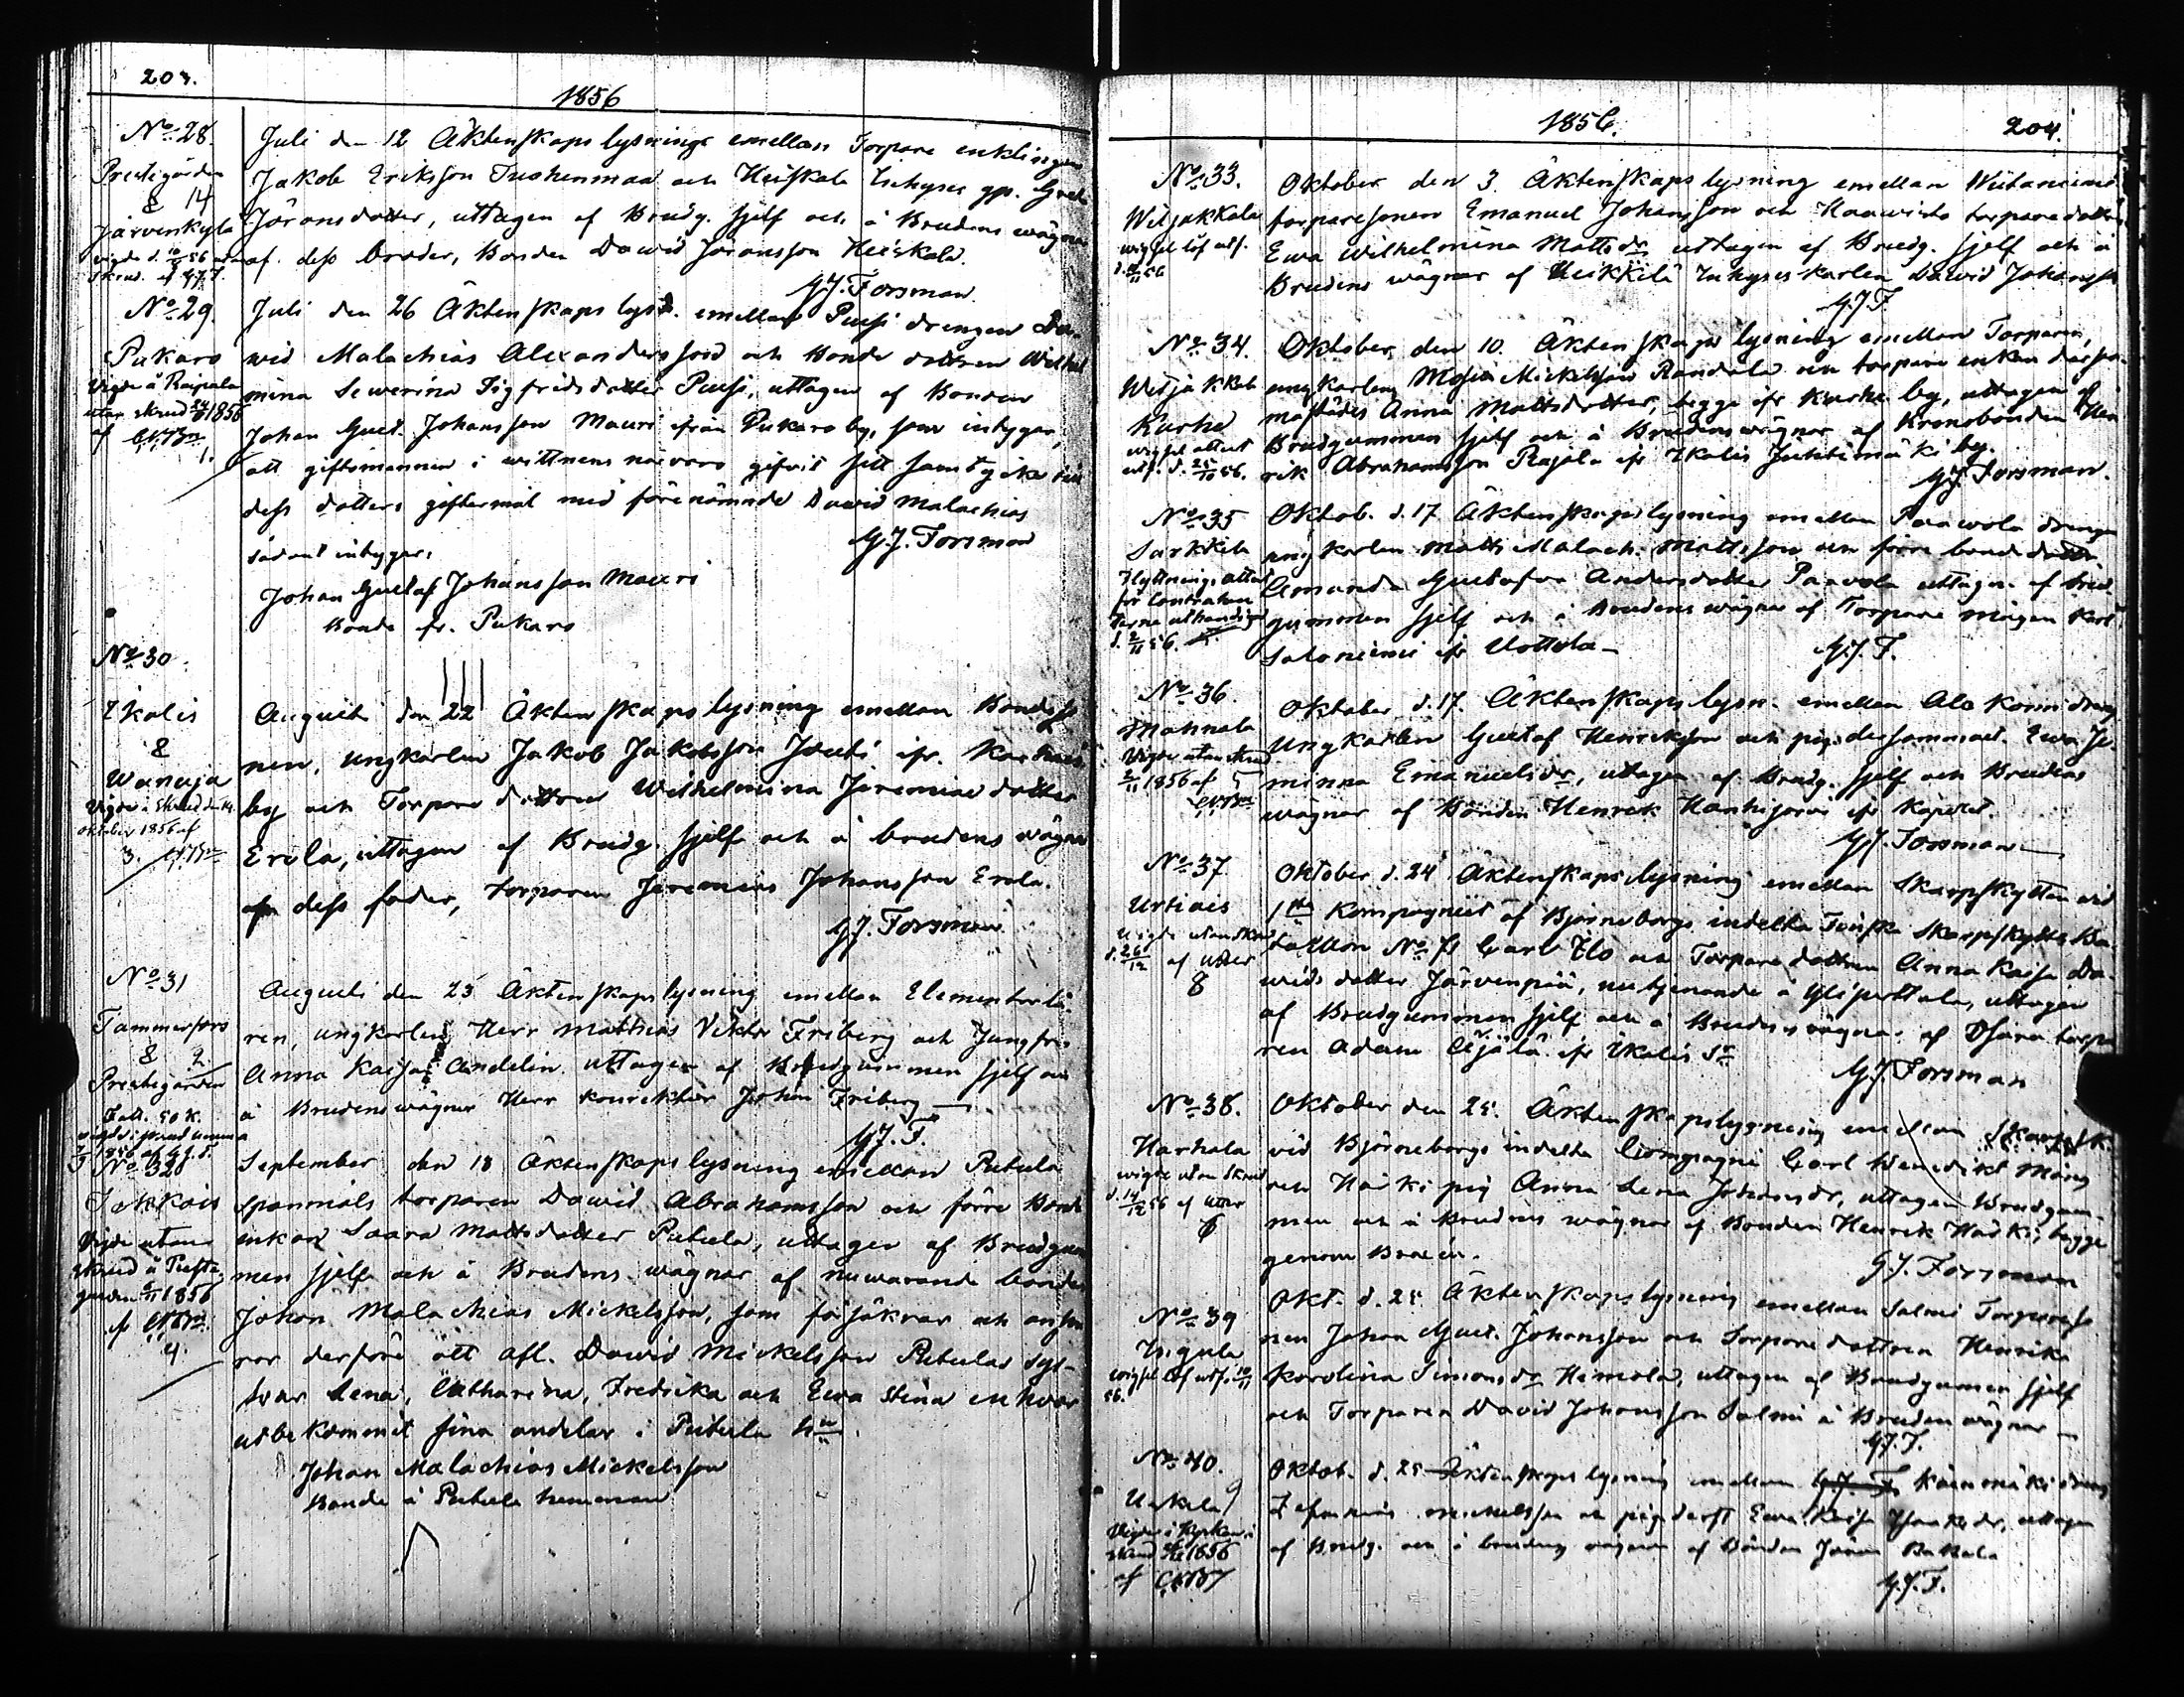 203.
1856
No 28.
Prestegården
& 14
Järvenkylä
vigde d. 10/ 56
skrud. af G.J.F.
Juli den 12 Äktenskaps lysning emellan Torpare enklingen
Jakob Eriksson och Heiskala Inhyses gp. Greta
Jöransdotter, uttagen af Brudg. sjelf och å Brudens wägnar
af dess broder, Bonden Dawid Jöransson Heiskala.
G.J. Forsman
No 29.
Pukaro
Vigde å Raipala
utan skrud 24/ 1856
af
1.
Juli den 26 Äktenskaps lysn. emellan Pussi drengen Da-
wid Malachias Alexandersson och Bonde dottren Wilhel
mina Sewerina Sigfridsdotter Pussi, uttagen af Bonden
Johan Gust. Johansson Mauri ifrån Pukaro by, som intygar,
att giftomannen i wittnens närvaro gifvit sitt samtycke till
dess dotters giftermål med förenämnde Dawid Malachias
sådant intygar,
G.J. Forsman
Johan Gustaf Johansson Mauri
Bonde fr. Pukaro
No 30
Ikalis
&
Wanaja
Vigde i Skrud den 14
oktober 1856 af
3.
Augusti den 22 Äktenskaps lysning emellan Bondeso
nen, ungkarlen Jakob Jakobsson Jouti ifr.
by och Torpare dottren Wilhelmina Jeremiae dotter
Erola, uttagen af Brudg. sjelf och å brudens wägnar
af dess fader, torparen Jeremias Johansson Erola.
G.J. Forsman
No 31
Tammerfors
& 2
Prestegården
Fatt. 50 K.
vigde i skrud
1856 af G.J.F.
Augusti den 23 Äktenskaps lysning emellan Elementarlä-
ren, ungkarlen Herr Matthias Viktor Friberg och Jungfru
Anna Kaisa Andelin uttagen af Brudgummen sjelf och
å Brudens wägnar Herr Konrektor Johan Friberg
G.J.F.
No 32
Jokkais
Vigde utan
skrud å Prestegården
6/11 1856
af
4.
September den 18 Äktenskaps lysning emellan Putula
spanmåls torparen Dawid Abrahamsson och förre Bonde
enkan Saara Mattsdotter Putula, uttagen af Brudgum
men sjelf och å Brudens wägnar af nuwarande bonden
Johan Malachias Mickelsson, som försäkrar och answa
rar derföre att afl. Dawid Mickelsson Putulas sys-
trar Lena, Catharina, Fredrika och Ewa Stina en hvar
utbekommit sina andelar i Putula hn.
Johan Malachias Mickelsson
Bonde å Putula hemman
1856.
204.
No 33.
Wiljakkala
wigsel löf utf.
d. /11 56
Oktober den 3. Äktenskaps lysning emellan Niitaniemi
torparesonen Emanuel Johansson och Haawisto torparedottren
Ewa Wilhelmina Mattsdr uttagen af Brudg. sjelf och å
Brudens wägnar af Heikkilä Inhyses karlen Dawid Johansson
G.J.F.
No 34.
Wiljakkala
Karhe
wigsel attest
utf. d. 25/10 56.
Oktober den 10. Äktenskaps lysning emellan Torparen,
ungkarlen Moses Mickelsson Randala och torpare enkan dersam
mastädes Anna Mattsdotter, begge ifr Karhe by, uttagen af
Brudgummen sjelf och å Brudens wägnar af Kronobonden Hen
rik Abrahamsson Rajala ifr Ikalis Juhtimäki by.
G.J. Forsman.
No 35
Sarkkila
Flyttnings attest
för Contrahen
terne uthändigad
d. 2/11 56.
Oktob. d. 17 Äktenskaps lysning emellan Paawola drengen
ungkarlen Matts Malach. Mattsson och förre bonde dottren
Amanda Gustafva Andersdotter Paavola uttagen af brud
gummen sjelf och å Brudens wägnar af Torpare mågen Karl
Saloniemi ifr Uottola
G.J.F.
No 36
Mahnala
Vigde utan skrud
2/11 1856 af 5
Oktober d. 17. Äktenskaps lysn. emellan Ala Komi dreng
Ungkarlen Gustaf Henriksson och pig. dersammast. Ewa Je
minna Emanuelsdr, uttagen af Brudg. sjelf och Brudens
wägnar af Bonden Henrik Hanhijärvi ifr
G.J. Forsman
No 37
Urtiais
Vigde utan skrud
d. 26/12 af
8
Oktober d. 24 Äktenskaps lysning emellan Skarpskytten wid
1sta Kompagniet af Björneborgs indelta Finska Skarpskytte Ba
taillon No 71 Carl Flo och Torpare dottren Anna Kaisa Da-
wids dotter Järvenpää, nu tjenande å Yliperttula, uttagen
af Brudgummen sjelf och å Brudens wägnar af torpa
ren Adam Äijälä ifr Ikalis Sn
G.J. Forsman
No 38.
Harhala
wigde utan skrud
d. 14/12 56 af
6
Oktober den 25. Äktenskapslysning emellan Skarpsk.
vid Björneborgs indelta Compagni Carl Benedikt Mång
och Harki pig Anna Lena Johansdr, uttagen Brudgum
men och å Brudens wägnar af Bonden Henrik Harki, begge
genom
G.J. Forsman
No 39
wigsel löf utf. 10/11
56.
Okt. d. 25 Äktenskaps lysning emellan Salmi Torpareso
nen Johan Gust. Johansson och Torpare dottren Henrika
Karolina Simonsdr Himola, uttagen af Brudgummen sjelf
och Torparen David Johansson Salmi å Brudens wägnar
G.J.F.
No 40.
9
Vigde i Kyrkan i
skrud 1856
af
Oktob. d. 25 Äktenskaps lysning emellan G.J.F. Koivumäki dreng
Mickelsson och pig. derst Ewa Kaisa Isaksdr, uttagen
af Brudg. och å brudens wägnar af Bonden Jöran Bakkala
G.J.F.